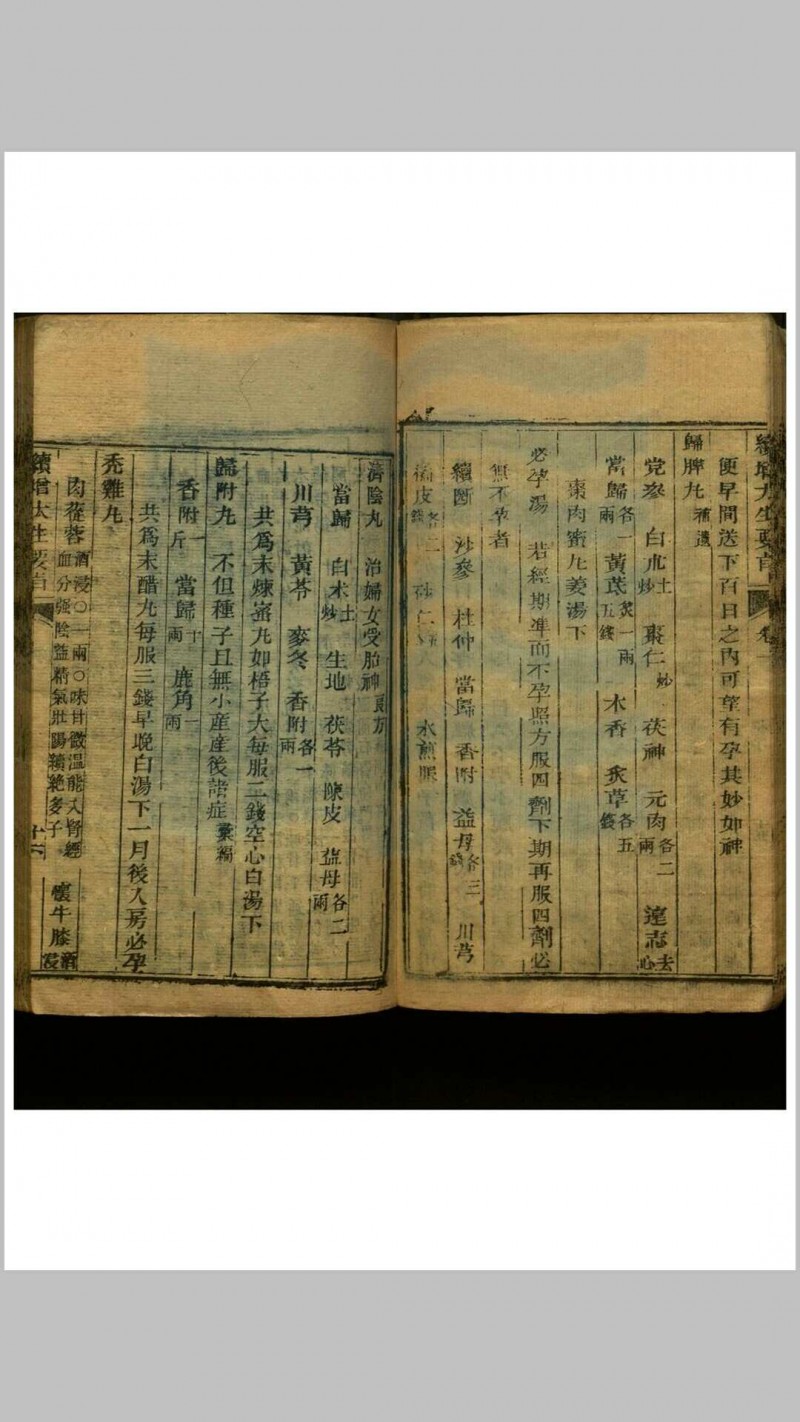 續增大生要旨 卷
便早間送下百日之內可望有孕其妙如神
歸脾丸 補遺
党參 白朮土炒 棗仁炒 茯神 元肉各二兩 遠志去心
當歸各一兩 黃芪炙一兩五錢 木香 炙草各五錢
棗肉蜜丸姜湯下
必孕湯 若經期準而不孕照方服四劑下期再服四劑必
無不孕者
續斷 沙參 杜仲 當歸 香附 益母各三錢 川芎
橘皮各二錢 砂仁五 水煎服
濟陰丸 治婦女受胎神良方
當歸 白朮土炒 生地 茯苓 陳皮 益母各二兩
川芎 黃芩 麥冬 香附各一兩
共為末煉蜜丸如梧子大每服二錢空心白湯下
歸附丸 不但種子且無小產產後諸症彙編
香附一斤 當歸十兩 鹿角一兩
共為末醋丸每服三錢早晚白湯下一月後入房必孕
禿雞丸
肉蓯蓉酒浸○一兩○味甘微溫能入腎經血分强陰益精氣壯陽續絕多子 懷牛膝酒浸
續增大生要旨 十六